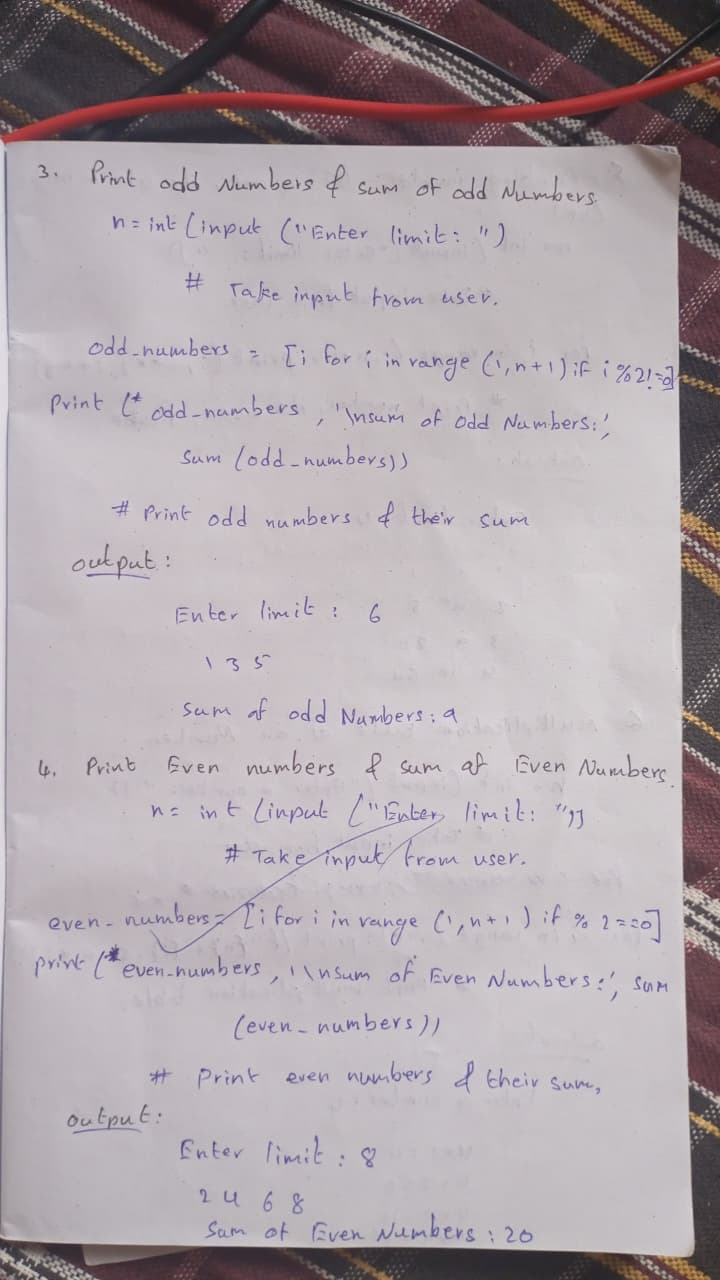 3. Print odd Numbers & sum of odd Numbers.
n = int (input ("Enter limit: ")
# Take input from user.
odd_numbers = [i for i in range (1,n+1) if i%2!=0]
Print (* odd_numbers, '\nsum of odd Numbers:',
Sum (odd_numbers))
# Print odd numbers & their sum
output:
Enter limit : 6
1 3 5
Sum of odd Numbers: 9
4. Print Even numbers & Sum of Even Numbers.
n = int (input ("Enter limit: "))
# Take input from user.
even_numbers = [i for i in range (1,n+1) if % 2 ==0]
print (* even_numbers, '\nsum of Even Numbers:', sum
(even_numbers))
# Print even numbers & their sum,
output:
Enter limit : 8
2 4 6 8
Sum of Even Numbers : 20